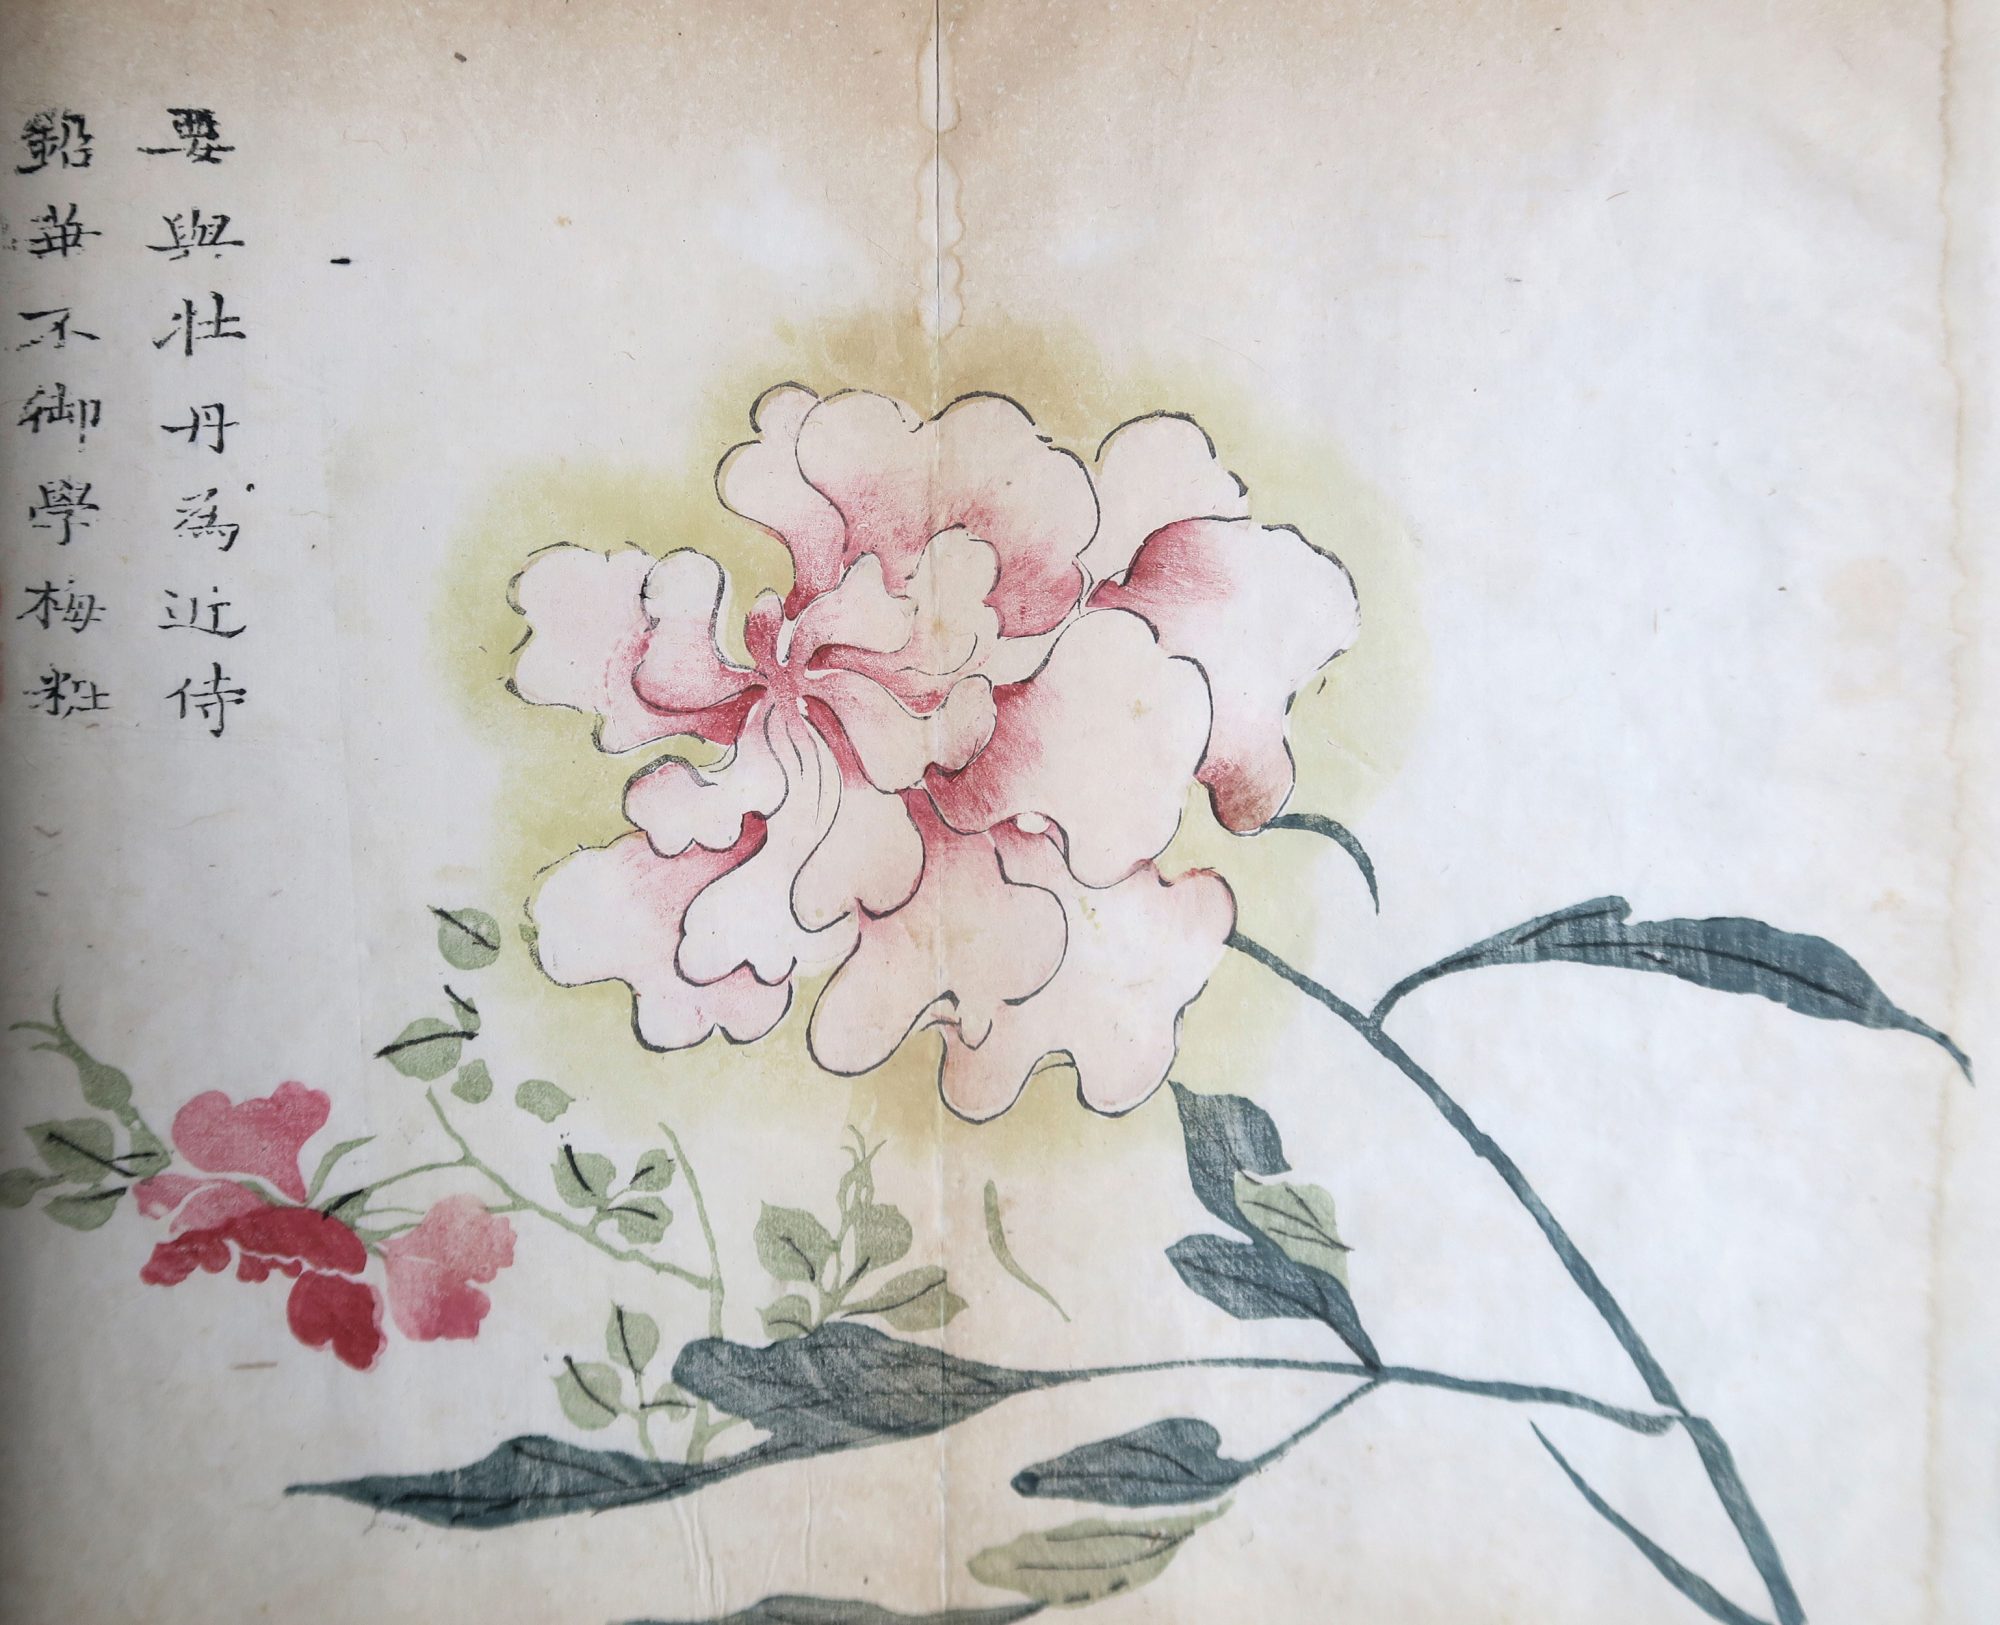 要與壯丹為近侍
鉛華不御學梅粧